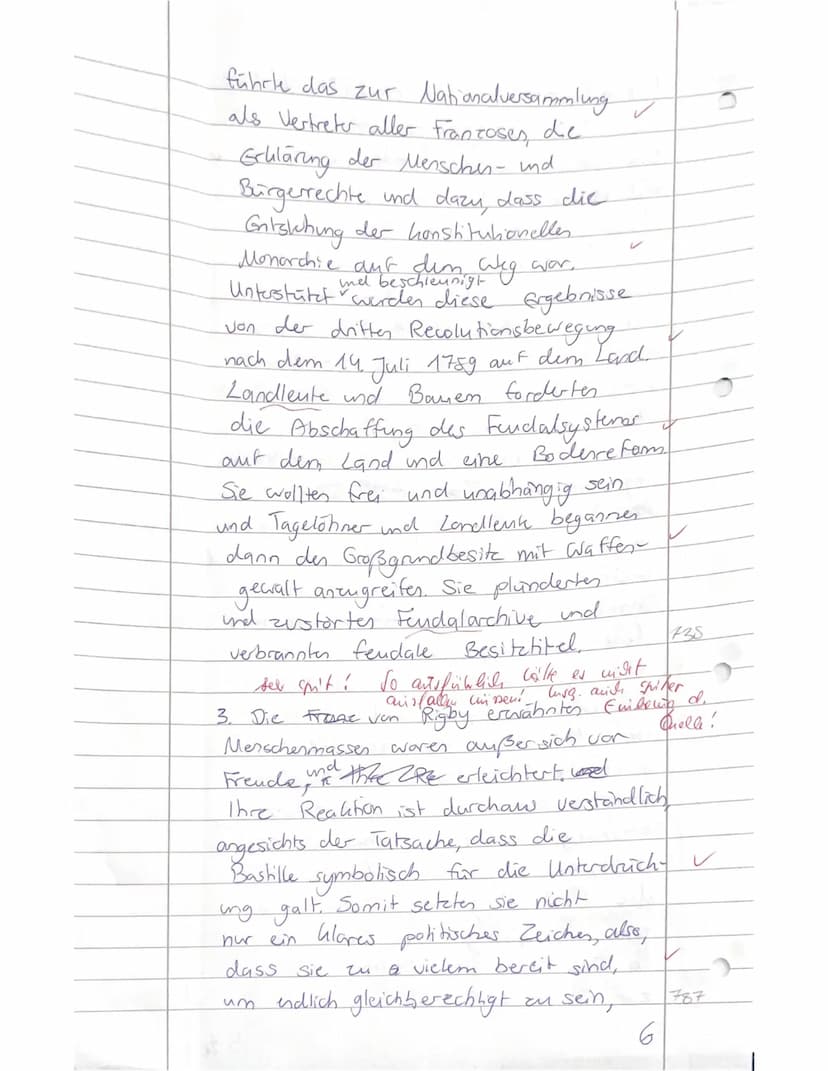 führte das zur Nationalversammlung
als Vertreter aller Franzosen, die
Erklärung der Menschen- und
Bürgerrechte und dazu, dass die
Entstehung der konstitutionellen
Monarchie auf dem Weg war.
und beschleunigt
Unterstützt wurden diese Ergebnisse
von der dritten Revolutionsbewegung
nach dem 14. Juli 1789 auf dem Land.
Landleute und Bauern forderten
die Abschaffung des Feudalsystems
auf dem Land und eine Bodenreform.
Sie wollten frei und unabhängig sein
und Tagelöhner und Landleute begannen
dann den Großgrundbesitz mit Waffen-
gewalt anzugreifen. Sie plünderten
und zerstörten Feudalarchive und
verbrannten feudale Besitztitel.
735
sehr gut! So ausführlich hätte es nicht
ausfallen müssen! Insg. auch später
Einbezug d.
Quelle!
3. Die von Rigby erwähnten
Menschenmassen waren außer sich vor
Freude, und erleichtert.
Ihre Reaktion ist durchaus verständlich,
angesichts der Tatsache, dass die
Bastille symbolisch für die Unterdrück-
ung galt. Somit setzten sie nicht
nur ein klares politisches Zeichen, also,
dass sie zu vielem bereit sind,
um endlich gleichberechtigt zu sein,
787
6